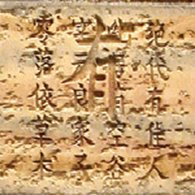 代有佳人
幽居在空谷
云良家子
零落依草木